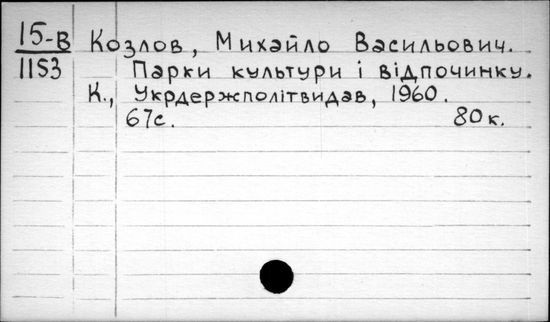 15-В Козлов, Михайло Васильович.
1153 Парки культури і відпочинку.
К., Укрдержполітвидав, 1960.
67с. 80к.